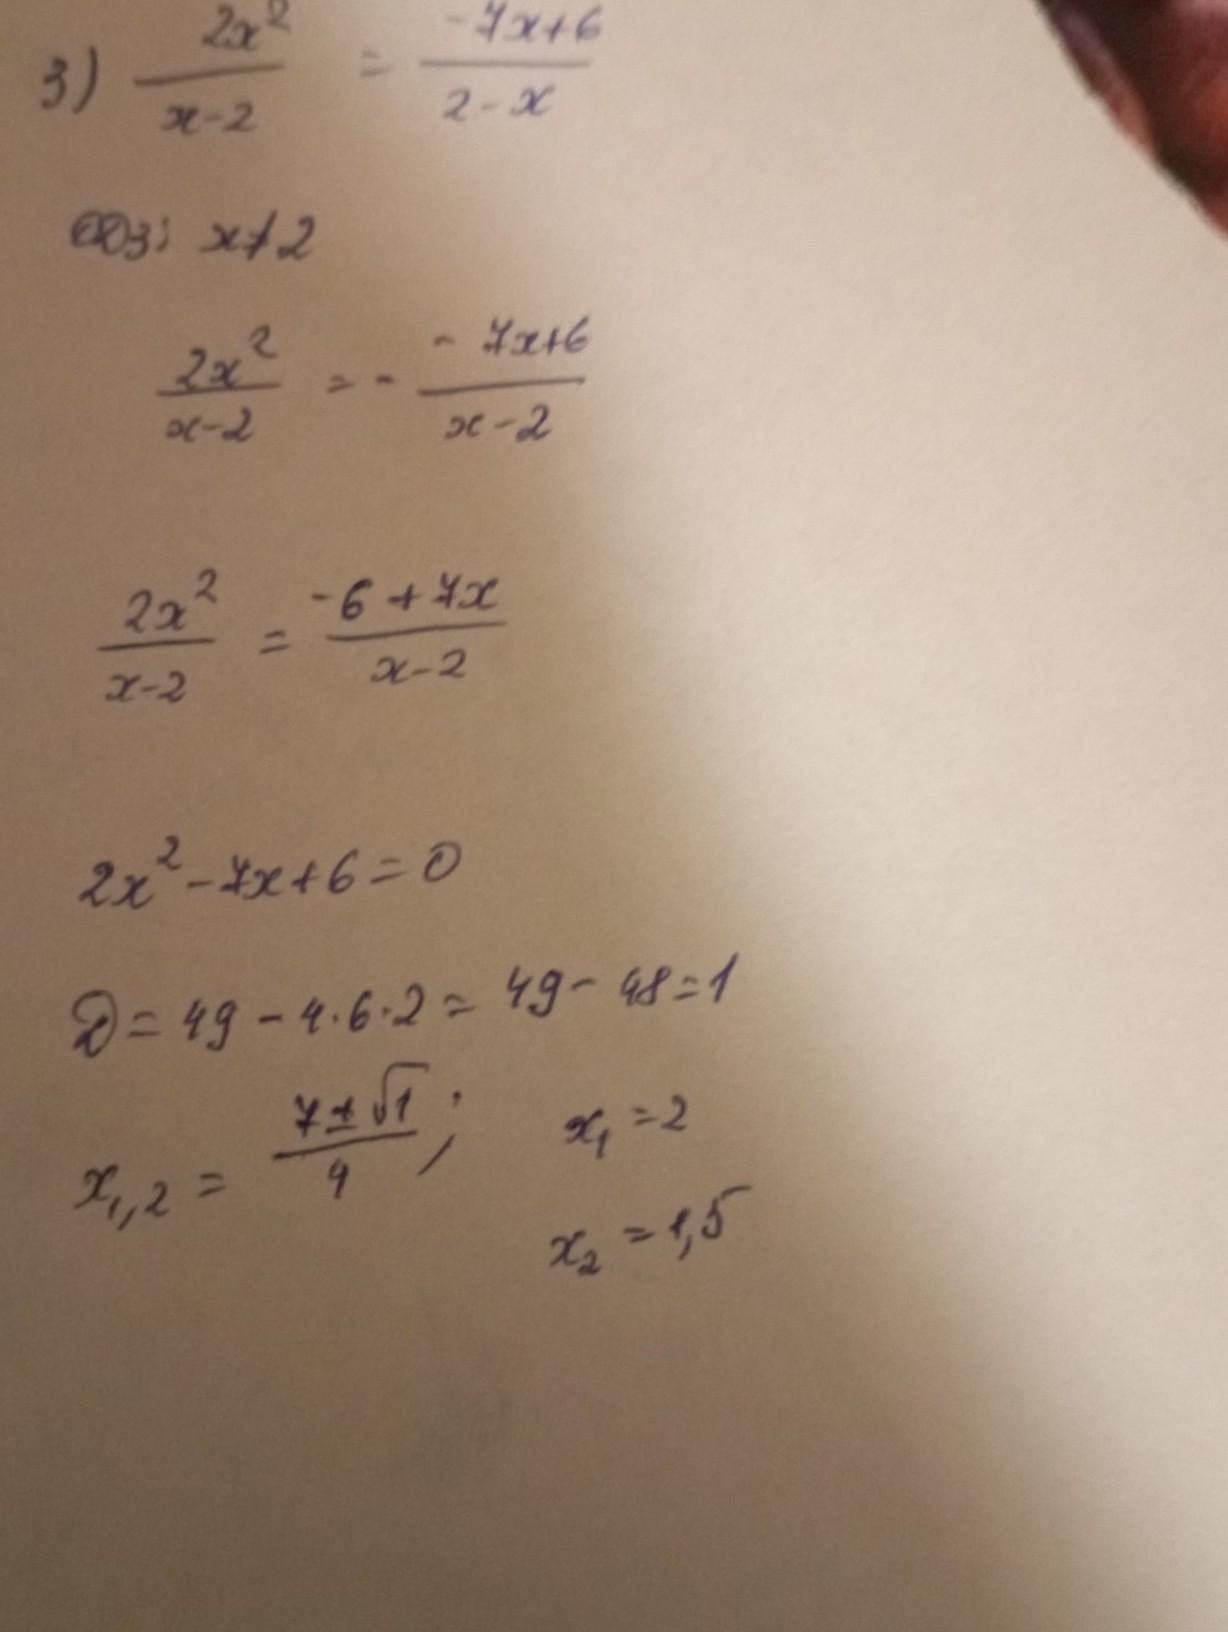 3) 2x²/(x-2) = (-7x+6)/(2-x)
ОДЗ: x≠2
2x²/(x-2) = - (-7x+6)/(x-2)
2x²/(x-2) = (-6+7x)/(x-2)
2x²-7x+6=0
D=49-4·6·2=49-48=1
x₁,₂ = (7±√1)/4; x₁=2
x₂=1,5